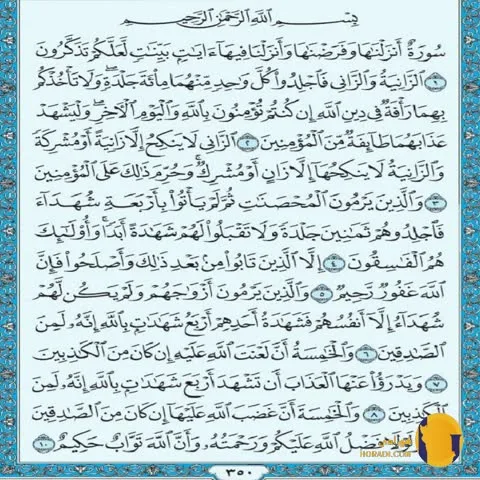 بِسْمِ اللَّهِ الرَّحْمَٰنِ الرَّحِيمِ
سُورَةٌ أَنزَلْنَاهَا وَفَرَضْنَاهَا وَأَنزَلْنَا فِيهَا ءَايَاتٍ بَيِّنَاتٍ لَّعَلَّكُمْ تَذَكَّرُونَ
١ الزَّانِيَةُ وَالزَّانِي فَاجْلِدُوا كُلَّ وَاحِدٍ مِّنْهُمَا مِائَةَ جَلْدَةٍ وَلَا تَأْخُذْكُم
بِهِمَا رَأْفَةٌ فِي دِينِ اللَّهِ إِن كُنتُمْ تُؤْمِنُونَ بِاللَّهِ وَالْيَوْمِ الْآخِرِ وَلْيَشْهَدْ
عَذَابَهُمَا طَائِفَةٌ مِّنَ الْمُؤْمِنِينَ ٢ الزَّانِي لَا يَنكِحُ إِلَّا زَانِيَةً أَوْ مُشْرِكَةً
وَالزَّانِيَةُ لَا يَنكِحُهَا إِلَّا زَانٍ أَوْ مُشْرِكٌ وَحُرِّمَ ذَٰلِكَ عَلَى الْمُؤْمِنِينَ
٣ وَالَّذِينَ يَرْمُونَ الْمُحْصَنَاتِ ثُمَّ لَمْ يَأْتُوا بِأَرْبَعَةِ شُهَدَاءَ
فَاجْلِدُوهُمْ ثَمَانِينَ جَلْدَةً وَلَا تَقْبَلُوا لَهُمْ شَهَادَةً أَبَدًا وَأُولَٰئِكَ
هُمُ الْفَاسِقُونَ ٤ إِلَّا الَّذِينَ تَابُوا مِن بَعْدِ ذَٰلِكَ وَأَصْلَحُوا فَإِنَّ
اللَّهَ غَفُورٌ رَّحِيمٌ ٥ وَالَّذِينَ يَرْمُونَ أَزْوَاجَهُمْ وَلَمْ يَكُن لَّهُمْ
شُهَدَاءُ إِلَّا أَنفُسُهُمْ فَشَهَادَةُ أَحَدِهِمْ أَرْبَعُ شَهَادَاتٍ بِاللَّهِ إِنَّهُ لَمِنَ
الصَّادِقِينَ ٦ وَالْخَامِسَةُ أَنَّ لَعْنَتَ اللَّهِ عَلَيْهِ إِن كَانَ مِنَ الْكَاذِبِينَ
٧ وَيَدْرَؤُا عَنْهَا الْعَذَابَ أَن تَشْهَدَ أَرْبَعَ شَهَادَاتٍ بِاللَّهِ إِنَّهُ لَمِنَ
الْكَاذِبِينَ ٨ وَالْخَامِسَةَ أَنَّ غَضَبَ اللَّهِ عَلَيْهَا إِن كَانَ مِنَ الصَّادِقِينَ
فَضْلُ اللَّهِ عَلَيْكُمْ وَرَحْمَتُهُ وَأَنَّ اللَّهَ تَوَّابٌ حَكِيمٌ ١٠
٣٥٠
HORADI.COM